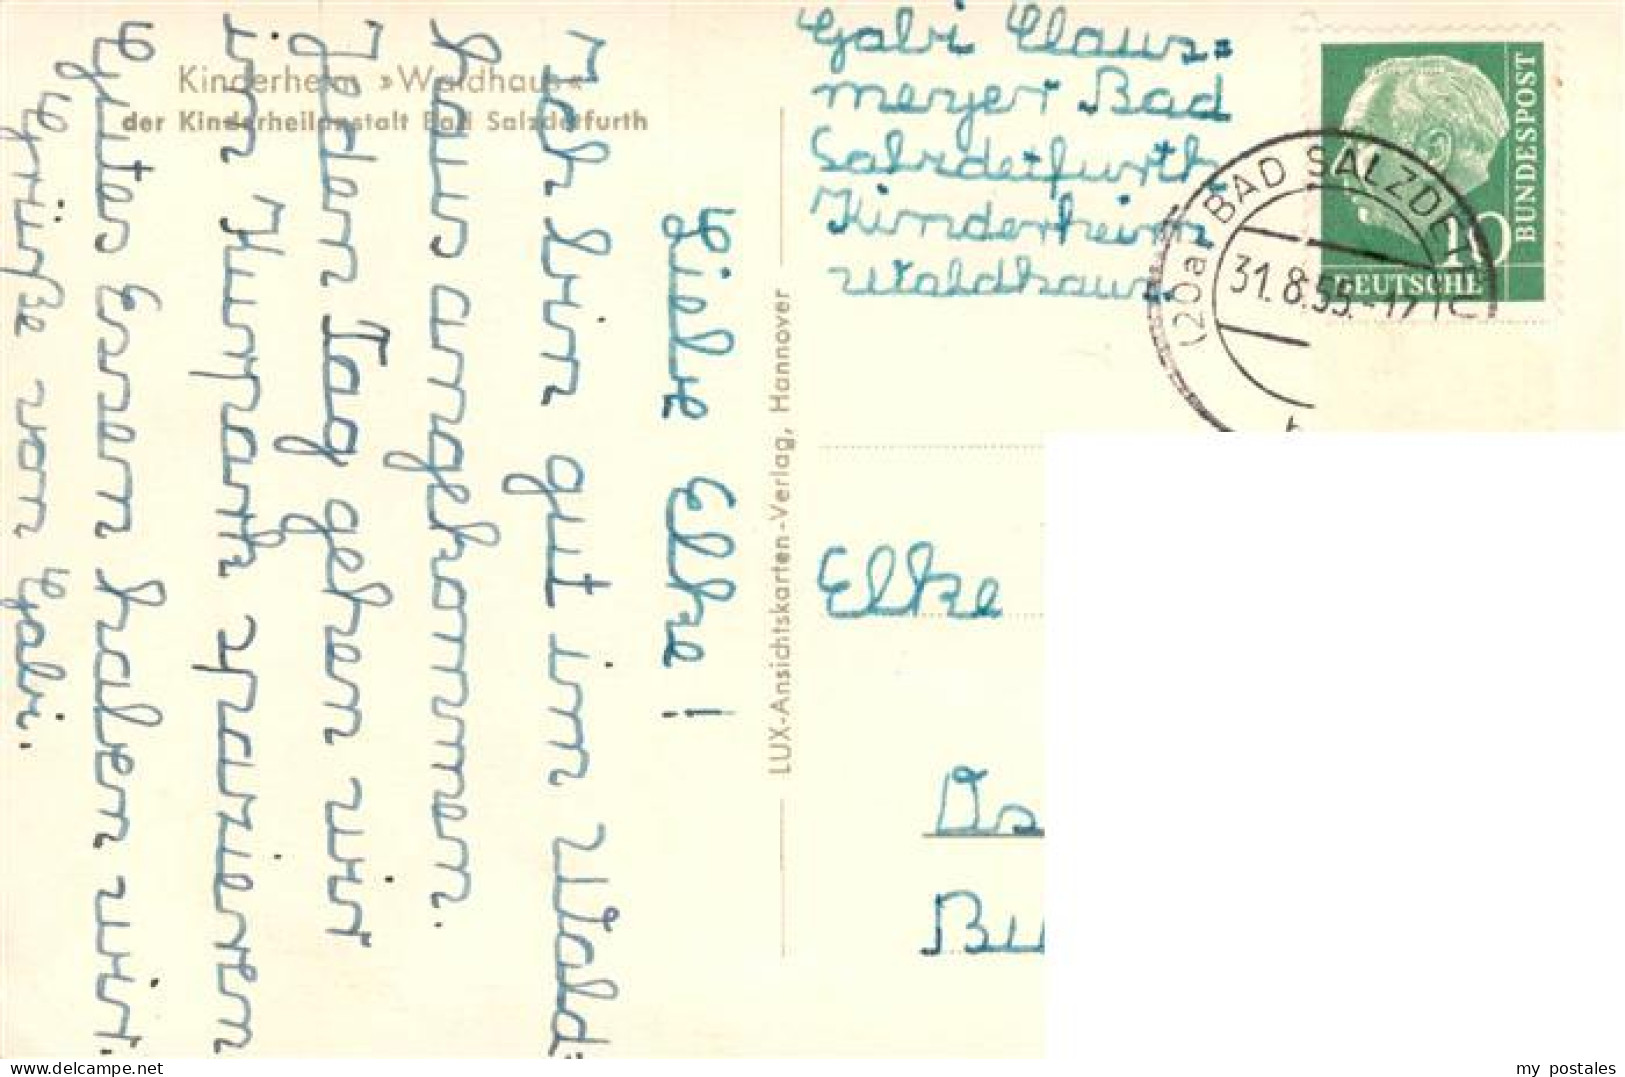 Kinderheim »Waldhaus«
der Kinderheilanstalt Bad Salzdetfurth
Liebe Elke!
Ich bin gut im Wald-
haus angekommen.
Jeden Tag gehen wir
im Kurpark spazieren
Gutes Essen haben wir.
Grüße von Gabi.
LUX-Ansichtskarten-Verlag, Hannover
Gabi Claus=
meyer Bad
Salzdetfurth
Kinderheim
Waldhaus
Elke
BUNDESPOST
10
DEUTSCHE
(20a) BAD SALZDET
31.8.55.-17
my postales